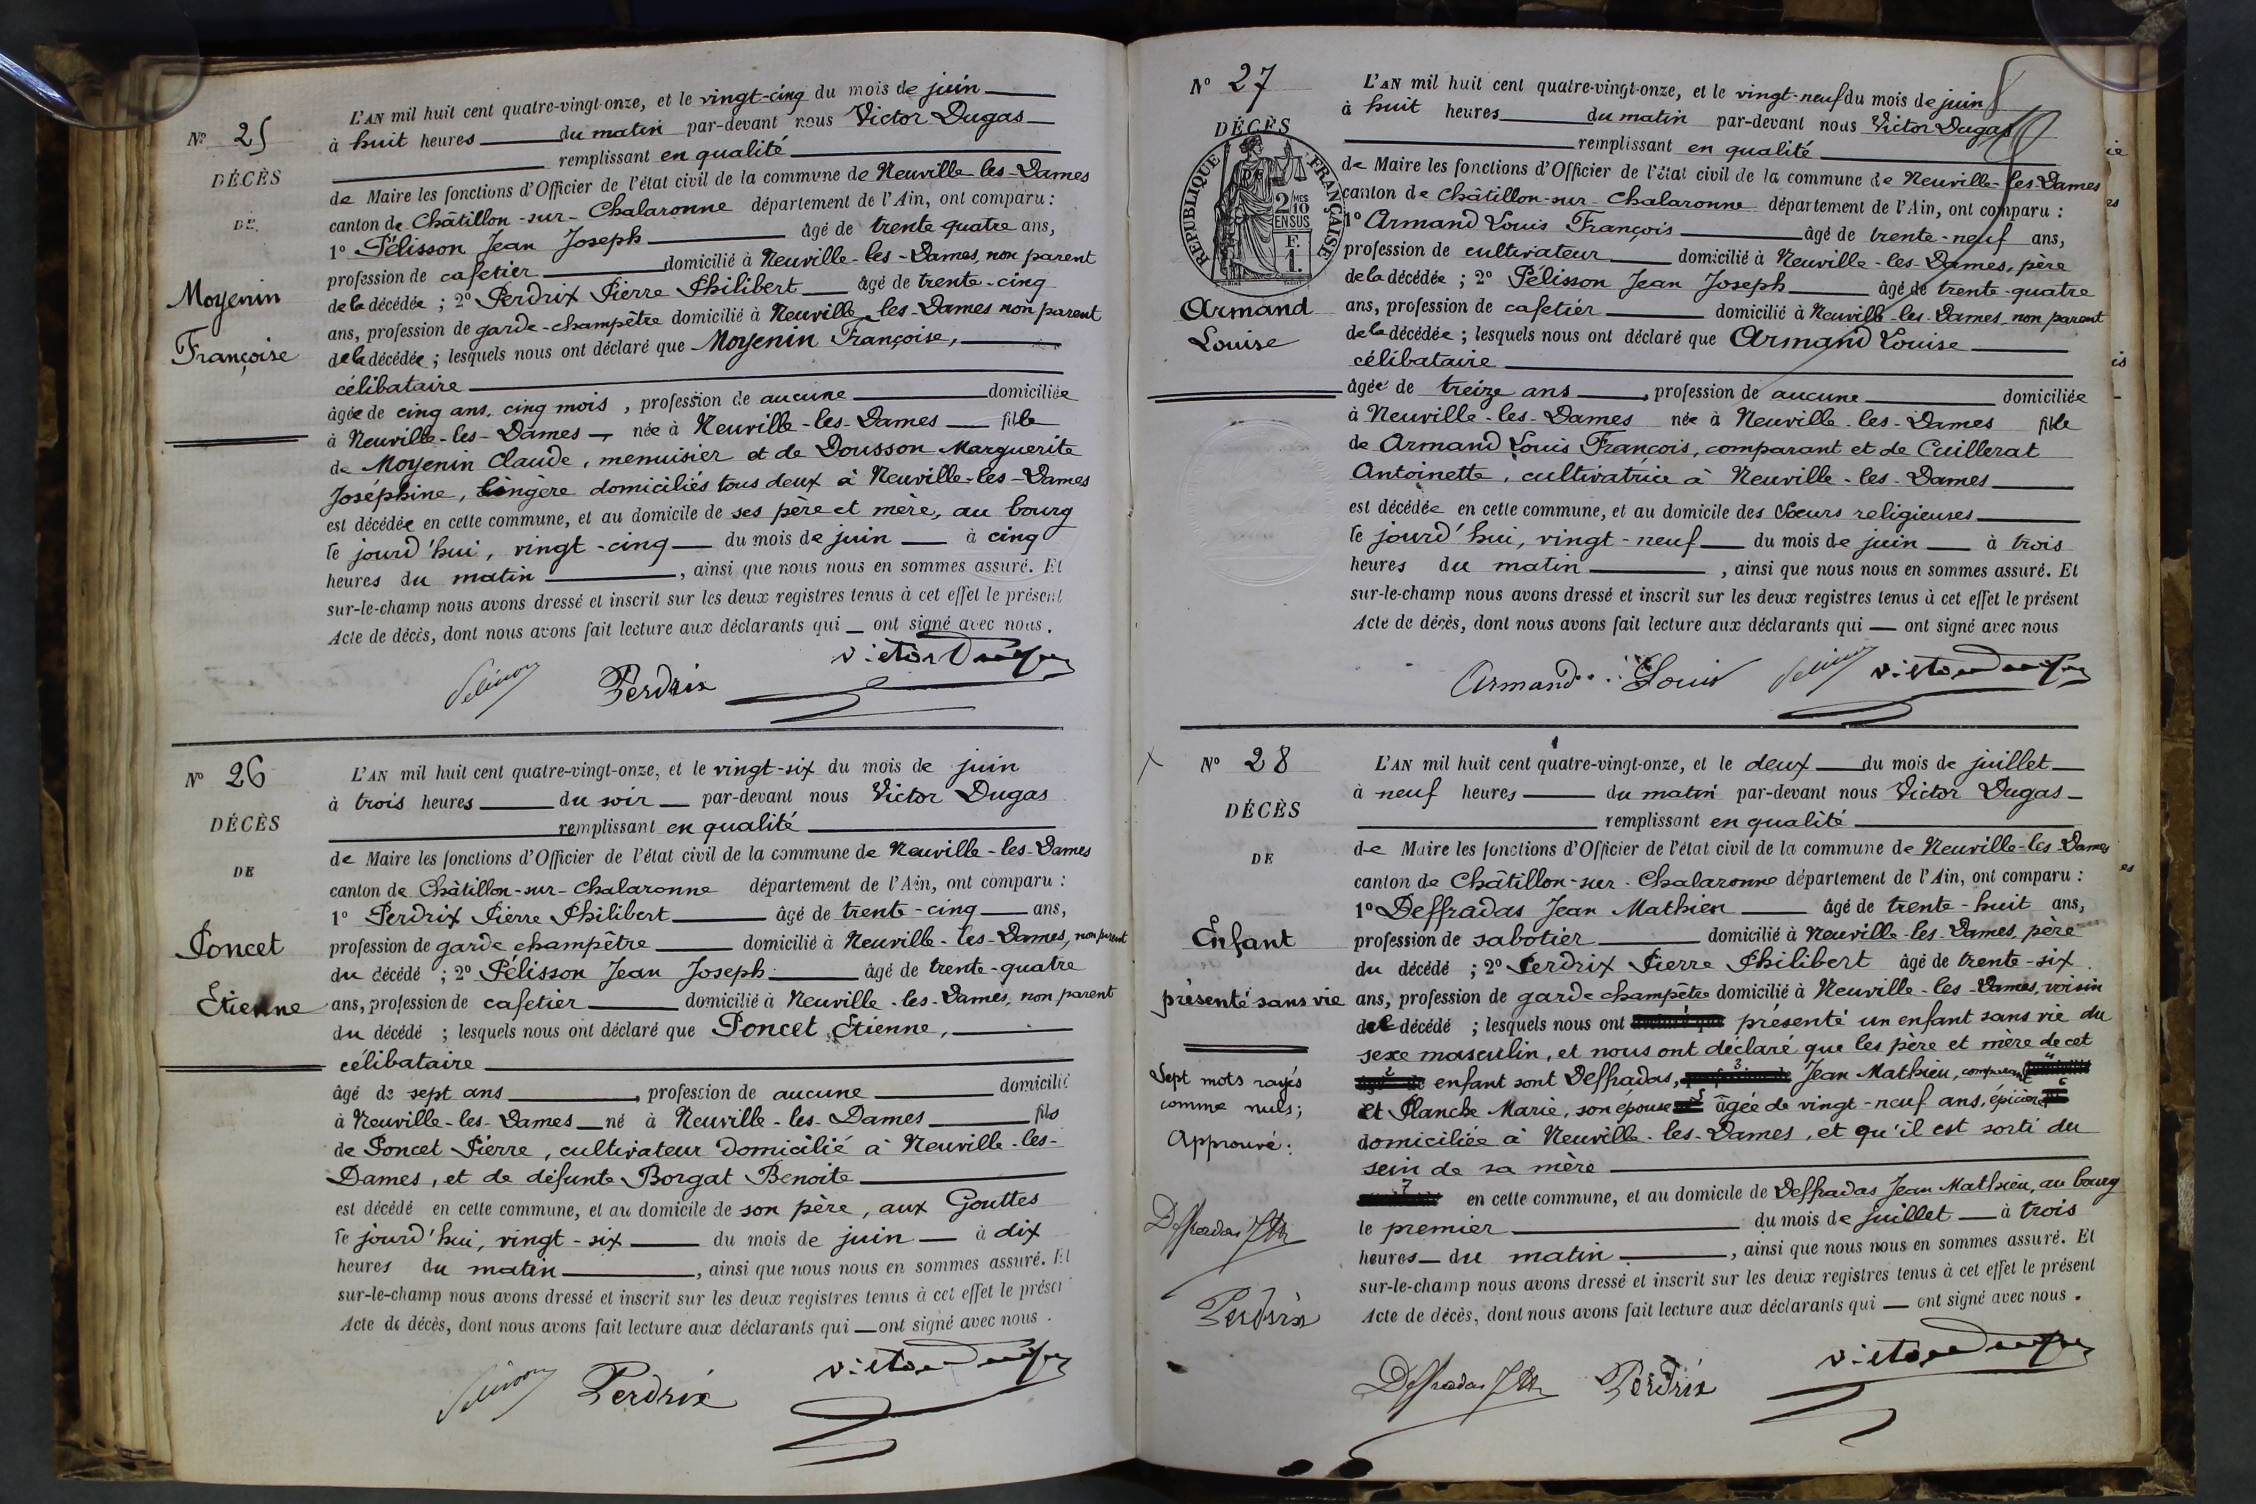 N° 25
DÉCÈS
DE
Moyenin
Françoise
L'AN mil huit cent quatre-vingt-onze, et le vingt-cinq du mois de juin
à huit heures du matin par-devant nous Victor Dugas
remplissant en qualité
de Maire les fonctions d'Officier de l'état civil de la commune de Neuville-les-Dames
canton de Châtillon-sur-Chalaronne département de l'Ain, ont comparu :
1° Pélisson Jean Joseph âgé de trente quatre ans,
profession de cafetier domicilié à Neuville-les-Dames, non parent
de la décédée ; 2° Perdrix Pierre Philibert âgé de trente-cinq
ans, profession de garde-champêtre domicilié à Neuville-les-Dames non parent
de la décédée ; lesquels nous ont déclaré que Moyenin Françoise,
célibataire
âgée de cinq ans, cinq mois, profession de aucune domiciliée
à Neuville-les-Dames, née à Neuville-les-Dames fille
de Moyenin Claude, menuisier et de Dousson Marguerite
Joséphine, lingère domiciliés tous deux à Neuville-les-Dames
est décédée en cette commune, et au domicile de ses père et mère, au bourg
le jourd'hui, vingt-cinq du mois de juin à cinq
heures du matin, ainsi que nous nous en sommes assuré. Et
sur-le-champ nous avons dressé et inscrit sur les deux registres tenus à cet effet le présent
Acte de décès, dont nous avons fait lecture aux déclarants qui ont signé avec nous.
Pélisson Perdrix Victor Dugas
N° 26
DÉCÈS
DE
Poncet
Etienne
L'AN mil huit cent quatre-vingt-onze, et le vingt-six du mois de juin
à trois heures du soir par-devant nous Victor Dugas
remplissant en qualité
de Maire les fonctions d'Officier de l'état civil de la commune de Neuville-les-Dames
canton de Châtillon-sur-Chalaronne département de l'Ain, ont comparu :
1° Perdrix Pierre Philibert âgé de trente-cinq ans,
profession de garde champêtre domicilié à Neuville-les-Dames, non parent
du décédé ; 2° Pélisson Jean Joseph âgé de trente-quatre
ans, profession de cafetier domicilié à Neuville-les-Dames, non parent
du décédé ; lesquels nous ont déclaré que Poncet Etienne,
célibataire
âgé de sept ans, profession de aucune domicilié
à Neuville-les-Dames né à Neuville-les-Dames fils
de Poncet Pierre, cultivateur domicilié à Neuville-les-
Dames, et de défunte Borgat Benoite
est décédé en cette commune, et au domicile de son père, aux Gouttes
le jourd'hui, vingt-six du mois de juin à dix
heures du matin, ainsi que nous nous en sommes assuré. Et
sur-le-champ nous avons dressé et inscrit sur les deux registres tenus à cet effet le présent
Acte de décès, dont nous avons fait lecture aux déclarants qui ont signé avec nous.
Pélisson Perdrix Victor Dugas
N° 27
DÉCÈS
DE
RÉPUBLIQUE FRANÇAISE
2/10 MES
EN SUS
F.
1.
Armand
Louise
L'AN mil huit cent quatre-vingt-onze, et le vingt-neuf du mois de juin
à huit heures du matin par-devant nous Victor Dugas
remplissant en qualité
de Maire les fonctions d'Officier de l'état civil de la commune de Neuville-les-Dames
canton de Châtillon-sur-Chalaronne département de l'Ain, ont comparu :
1° Armand Louis François âgé de trente-neuf ans,
profession de cultivateur domicilié à Neuville-les-Dames, père
de la décédée ; 2° Pélisson Jean Joseph âgé de trente-quatre
ans, profession de cafetier domicilié à Neuville-les-Dames, non parent
de la décédée ; lesquels nous ont déclaré que Armand Louise
célibataire
âgée de treize ans, profession de aucune domiciliée
à Neuville-les-Dames née à Neuville-les-Dames fille
de Armand Louis François, comparant et de Cuillerat
Antoinette, cultivatrice à Neuville-les-Dames
est décédée en cette commune, et au domicile des Sœurs religieuses
le jourd'hui, vingt-neuf du mois de juin à trois
heures du matin, ainsi que nous nous en sommes assuré. Et
sur-le-champ nous avons dressé et inscrit sur les deux registres tenus à cet effet le présent
Acte de décès, dont nous avons fait lecture aux déclarants qui ont signé avec nous
Armand Louis Pélisson Victor Dugas
N° 28
DÉCÈS
DE
Enfant
présenté sans vie
Sept mots rayés
comme nuls;
Approuvé:
Deffradas JM
Perdrix
L'AN mil huit cent quatre-vingt-onze, et le deux du mois de juillet
à neuf heures du matin par-devant nous Victor Dugas
remplissant en qualité
de Maire les fonctions d'Officier de l'état civil de la commune de Neuville-les-Dames
canton de Châtillon-sur-Chalaronne département de l'Ain, ont comparu :
1° Deffradas Jean Mathieu âgé de trente-huit ans,
profession de sabotier domicilié à Neuville-les-Dames, père
du décédé ; 2° Perdrix Pierre Philibert âgé de trente-six
ans, profession de garde champêtre domicilié à Neuville-les-Dames, voisin
du décédé ; lesquels nous ont présenté un enfant sans vie du
sexe masculin, et nous ont déclaré que les père et mère de cet
enfant sont Deffradas, Jean Mathieu, comparant
et Planche Marie, son épouse âgée de vingt-neuf ans, épicière
domiciliée à Neuville-les-Dames, et qu'il est sorti du
sein de sa mère
en cette commune, et au domicile de Deffradas Jean Mathieu, au bourg
le premier du mois de juillet à trois
heures du matin, ainsi que nous nous en sommes assuré. Et
sur-le-champ nous avons dressé et inscrit sur les deux registres tenus à cet effet le présent
Acte de décès, dont nous avons fait lecture aux déclarants qui ont signé avec nous.
Deffradas JM Perdrix Victor Dugas